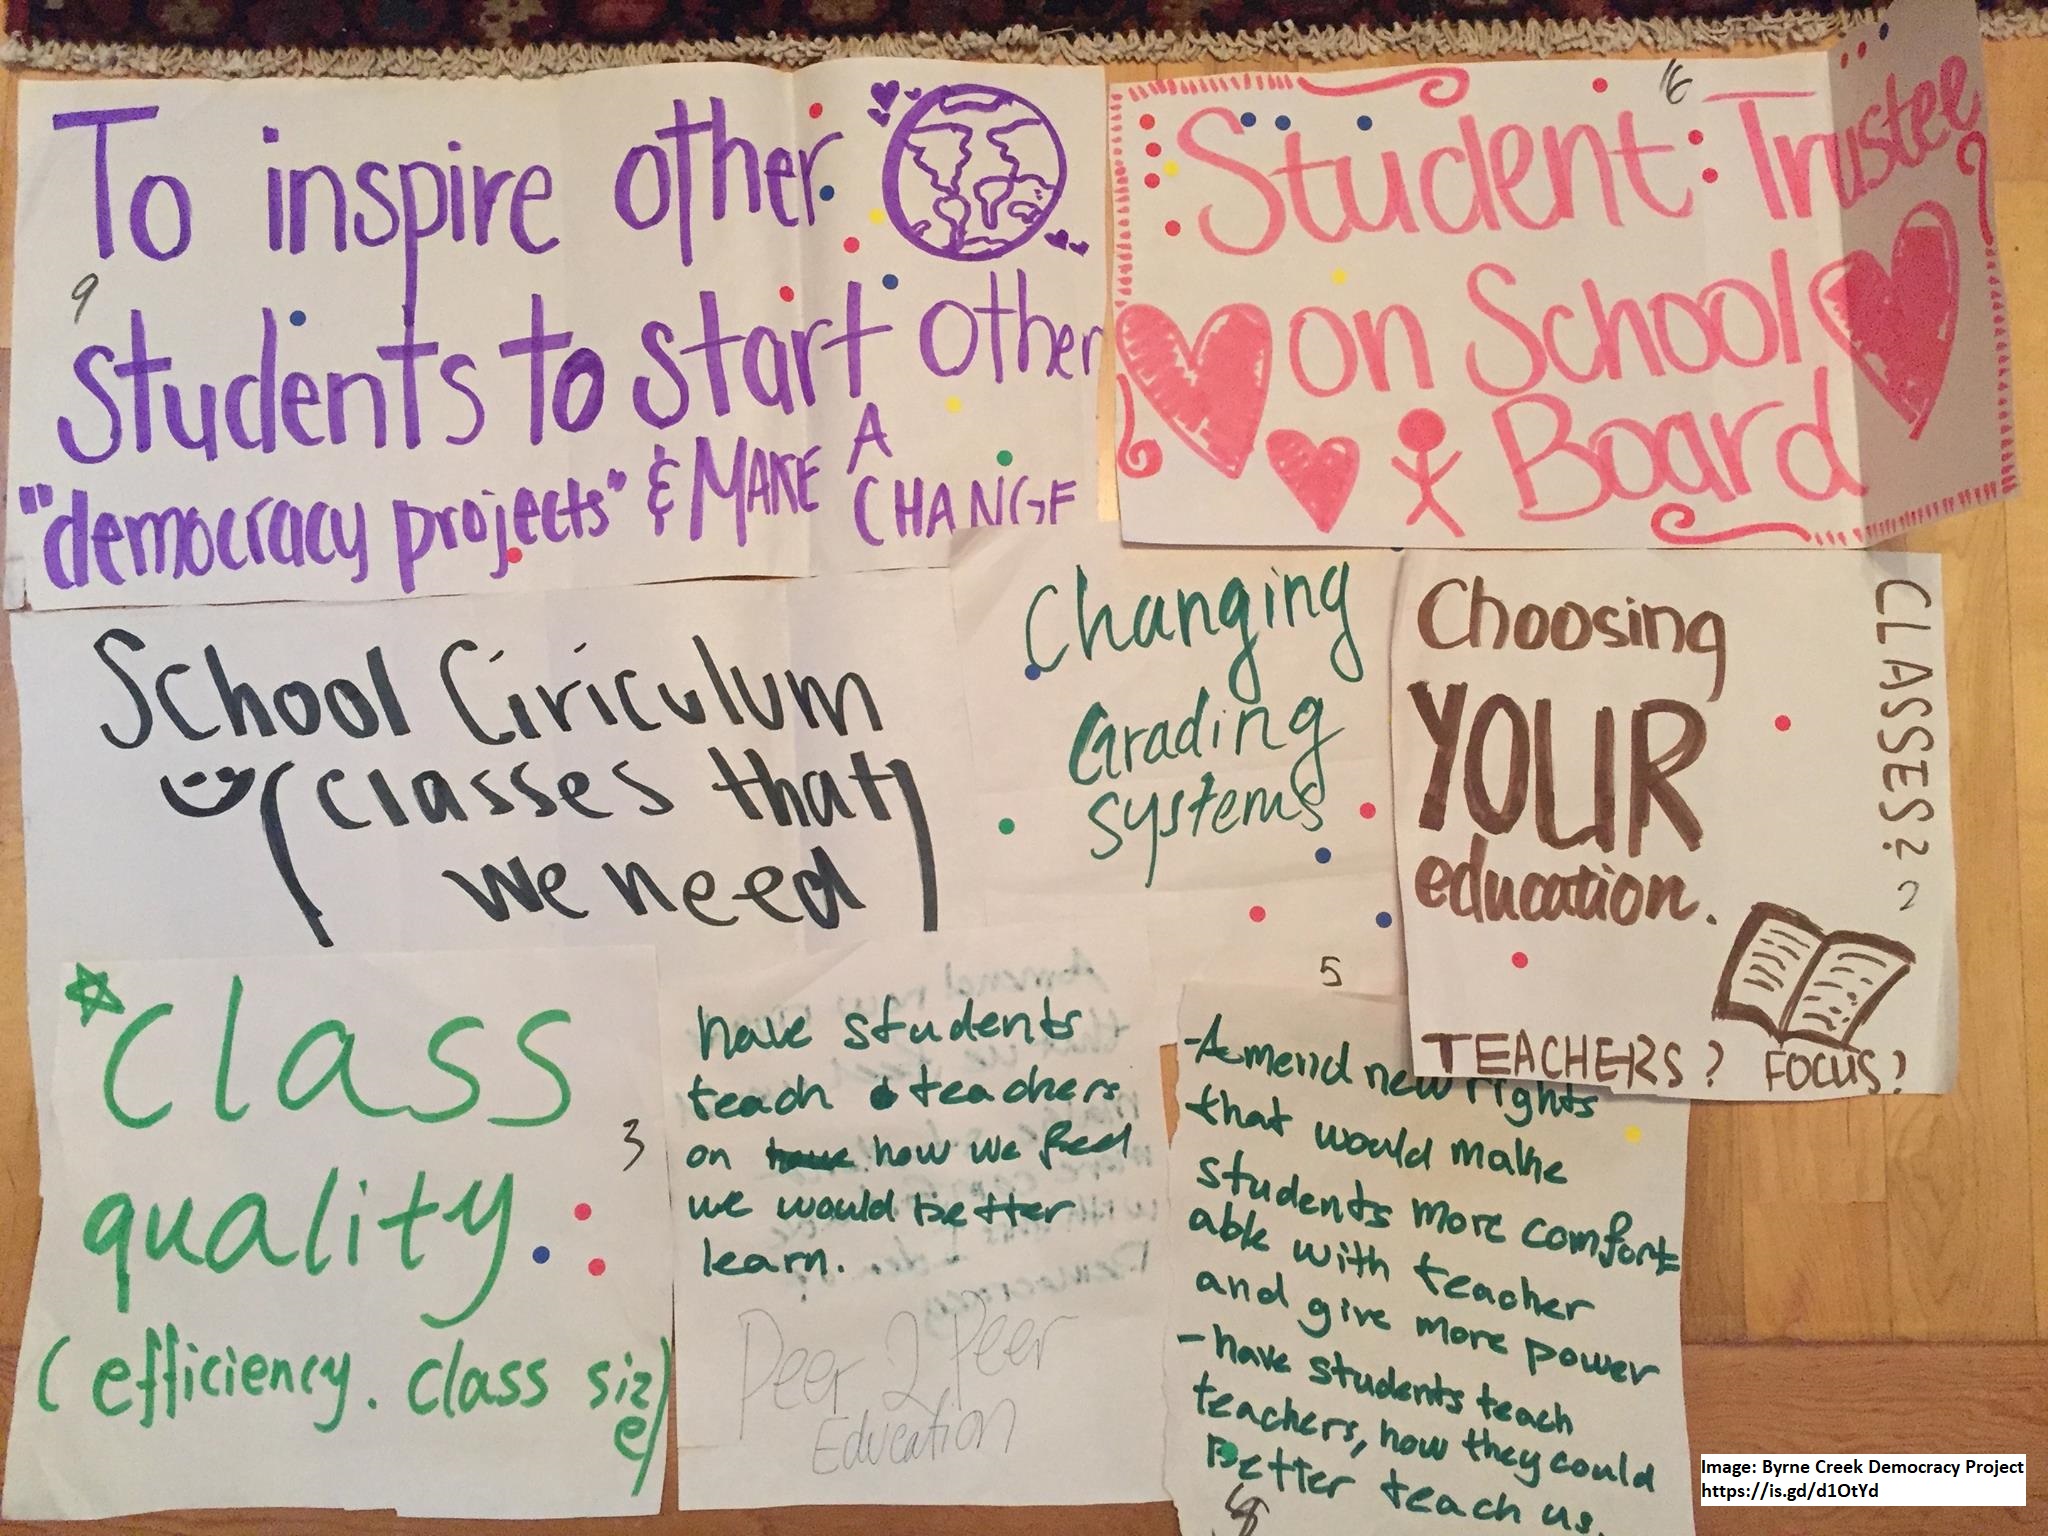 To inspire other
students to start other
"democracy projects" & MAKE A
CHANGE
9
16
Student Trustee
on School
Board
School Ciriculum
(classes that
we need)
Changing
Grading
systems
5
Choosing
YOUR
education.
CLASSES?
2
TEACHERS? FOCUS?
Class
quality.
3
(efficiency. class size)
have students
teach teachers
on how we feel
we would better
learn.
Peer 2 Peer
Education
-Amend new rights
that would make
students more comfort
able with teacher
and give more power
- have students teach
teachers, how they could
Better teach us.
Image: Byrne Creek Democracy Project
https://is.gd/d1OtYd